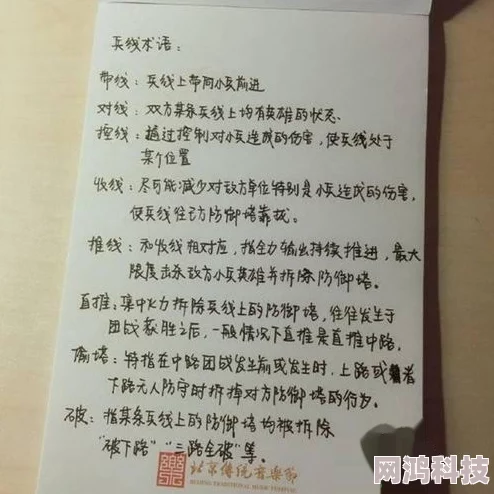 兵线术语：
带线：兵线上带同小兵前进
对线：双方某条兵线上均有英雄的状态.
控线：通过控制对小兵造成的伤害，使兵线处于
某个位置
收线：尽可能减少对敌方单位特别是小兵造成的伤害，
使兵线往己方防御塔靠拢。
推线：和收线相对应，指全力输出持续推进，最大
限度击杀敌方小兵英雄并拆除防御塔。
直推：集中火力拆除兵线上的防御塔，往往发生于
团战获胜之后，一般情况下直推是直推中路.
偷塔：特指在中路团战发生前或发生时，上路或者
下路无人防守时拆掉对方防御塔的行为.
破：指某条兵线上的防御塔均被拆除
“破下路”“三路全破”等。
北京传统音乐节
BEIJING TRADITIONAL MUSIC FESTIVAL
网鸿科技